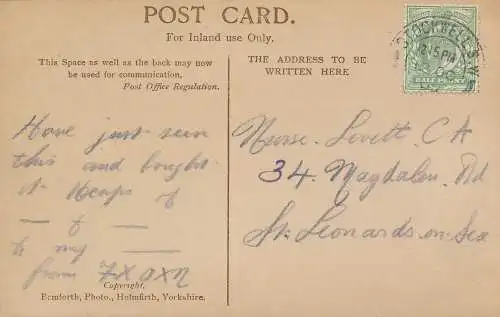 POST CARD.
For Inland use Only.
This Space as well as the back may now
be used for communication.
Post Office Regulation.
Have just seen
this and bought
it Heaps of
— & —
to my —
from
Copyright.
Bamforth, Photo., Holmfirth, Yorkshire.
THE ADDRESS TO BE
WRITTEN HERE
Nurse Lovett C A
34. Magdalen Rd
St. Leonards-on-Sea
STOCKWELL S.W.
8.15 PM
HALF PENNY